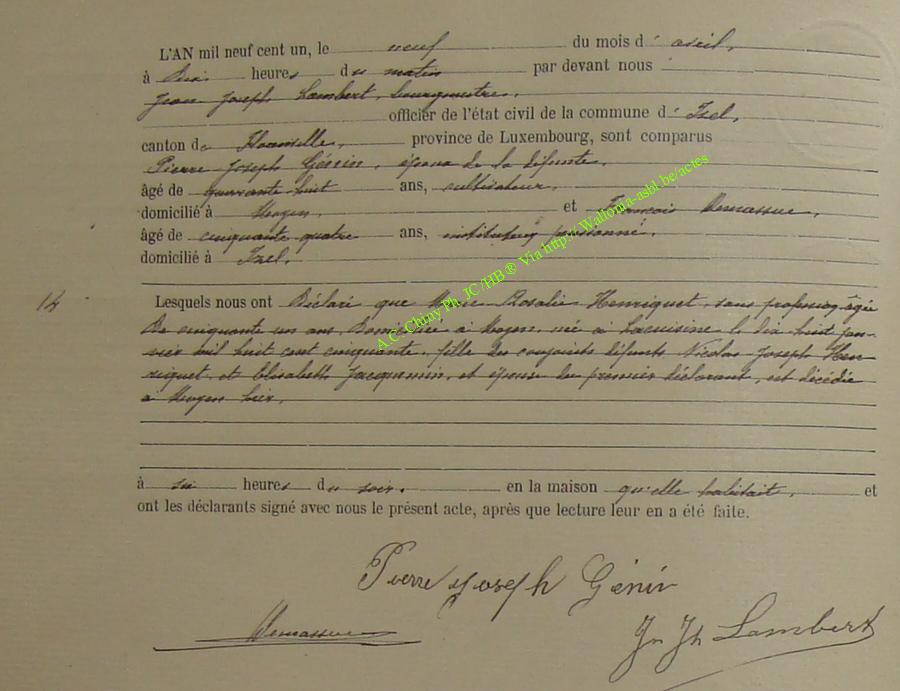 L'AN mil neuf cent un, le neuf du mois d'avril,
à dix heures du matin par devant nous
Jean Joseph Lambert, bourgmestre,
officier de l'état civil de la commune d'Izel,
canton de Florenville, province de Luxembourg, sont comparus
Pierre Joseph Génin, époux de la défunte,
âgé de quarante huit ans, cultivateur,
domicilié à Moyen, et François Demassue,
âgé de cinquante quatre ans, instituteur pensionné,
domicilié à Izel,
14 Lesquels nous ont déclaré que Marie Rosalie Henriquet, sans profession, âgée
de cinquante un ans, domiciliée à Moyen, née à Lacuisine le dix huit jan-
vier mil huit cent cinquante, fille des conjoints défunts Nicolas Joseph Hen-
riquet et Elisabeth Jacquemin, et épouse du premier déclarant, est décédée
à Moyen hier,
à six heures du soir, en la maison qu'elle habitait, et
ont les déclarants signé avec nous le présent acte, après que lecture leur en a été faite.
Pierre Joseph Génin
Demassue
Jn Jh Lambert
A.C. Chiny Ph. JC/HB® Via http://Wallonia-asbl.be/actes